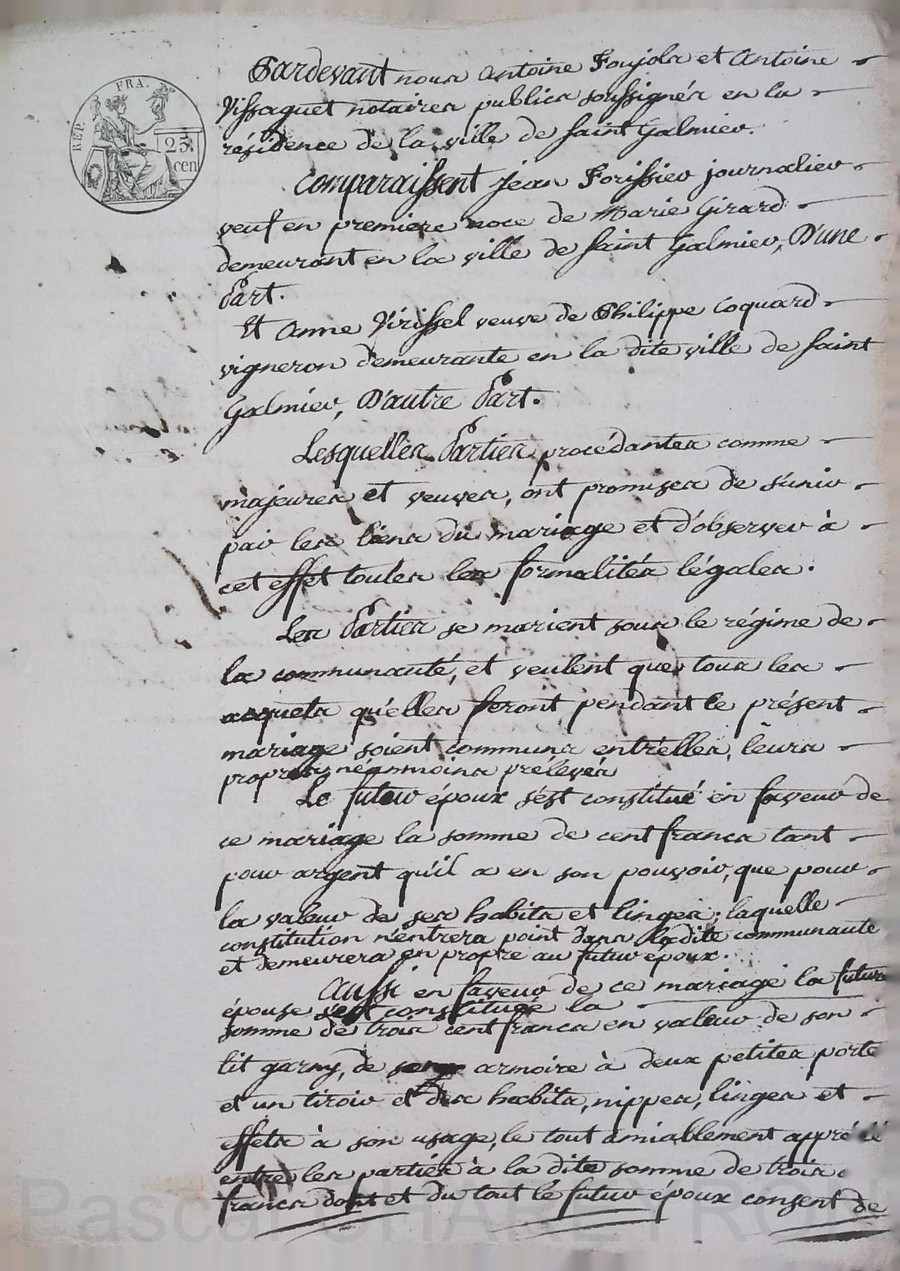 REP. FRA.
25 cen
Pardevant nous Antoine Foujols et Antoine
Vissaguet notaires publics soussignés en la
résidence de la ville de Saint Galmier.
Comparaissent Jean Forissier journalier
veuf en premiere noce de Marie Girard
demeurant en la ville de Saint Galmier, D'une
Part.
Et Anne Virissel veuve de Philippe Coquard
vigneron demeurante en la dite ville de Saint
Galmier, D'autre Part.
Lesquelles Parties procédantes comme
majeures et veuves, ont promises de s'unir
par les liens du mariage et d'observer à
cet effet toutes les formalités légales.
Les Parties se marient sous le régime de
la communauté, et veulent que tous les
acquets qu'elles feront pendant le présent
mariage soient communs entr'elles, leurs
propres néanmoins prélevés
Le futur époux s'est constitué en faveur de
ce mariage la somme de cent francs tant
pour argent qu'il a en son pouvoir, que pour
la valeur de ses habits et linges; laquelle
constitution n'entrera point dans la dite communauté
et demeurera en propre au futur époux.
Aussi en faveur de ce mariage la future
épouse s'est constituée la
somme de trois cent francs en valeur de son
lit garny, de armoire à deux petites porte
et un tiroir et des habits, nippes, linges et
effets à son usage, le tout amiablement apprécié
entre les parties à la dite somme de trois
francs dont et du tout le futur époux consent de
Pascal CHARLEYRON